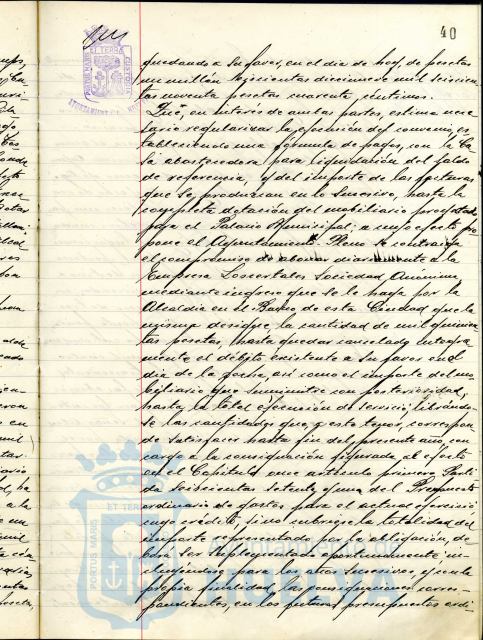 40
quedando a su favor, en el dia de hoy, de pesetas
un millón seiscientas diecinueve mil seiscien-
tas noventa pesetas cuarenta céntimos.
Que, en interés de ambas partes, estima nece-
sario regularizar la ejecución del convenio, es-
tableciendo una fórmula de pagos, con la Ca-
sa abastecedora para liquidación del saldo
de referencia, y del importe de las facturas
que se produzcan en lo sucesivo, hasta la
completa dotación del mobiliario proyectado
para el Palacio Municipal; a cuyo efecto pro-
pone el Ayuntamiento Pleno se contraiga
el compromiso de abonar diariamente a la
Empresa Loscertales Sociedad Anónima
mediante ingreso que se le haga por la
Alcaldia en el Banco de esta Ciudad que la
misma designe, la cantidad de mil quinien-
tas pesetas, hasta quedar cancelado integra-
mente el débito existente a su favor en el
dia de la fecha, así como el importe del mo-
biliario que suministre con posterioridad,
hasta la total ejecución del servicio, librándo-
se las cantidades que, a este tenor, correspon-
da satisfacer hasta fin del presente año, con
cargo a la consignación figurada al efecto
en el Capítulo once artículo primero Parti-
da seiscientas setenta y una del Presupuesto
ordinario de gastos para el actual ejercicio
cuyo crédito, si no cubriese la totalidad del
importe representado por la obligación, de-
berá ser suplementado oportunamente in-
cluyéndose para los años sucesivos, y con la
propia finalidad, las consignaciones corres-
pondientes, en los futuros presupuestos ordi-
PORTUS MARIS
ET TERRA
CUSTODIA
Ayuntamiento de
HUELVA